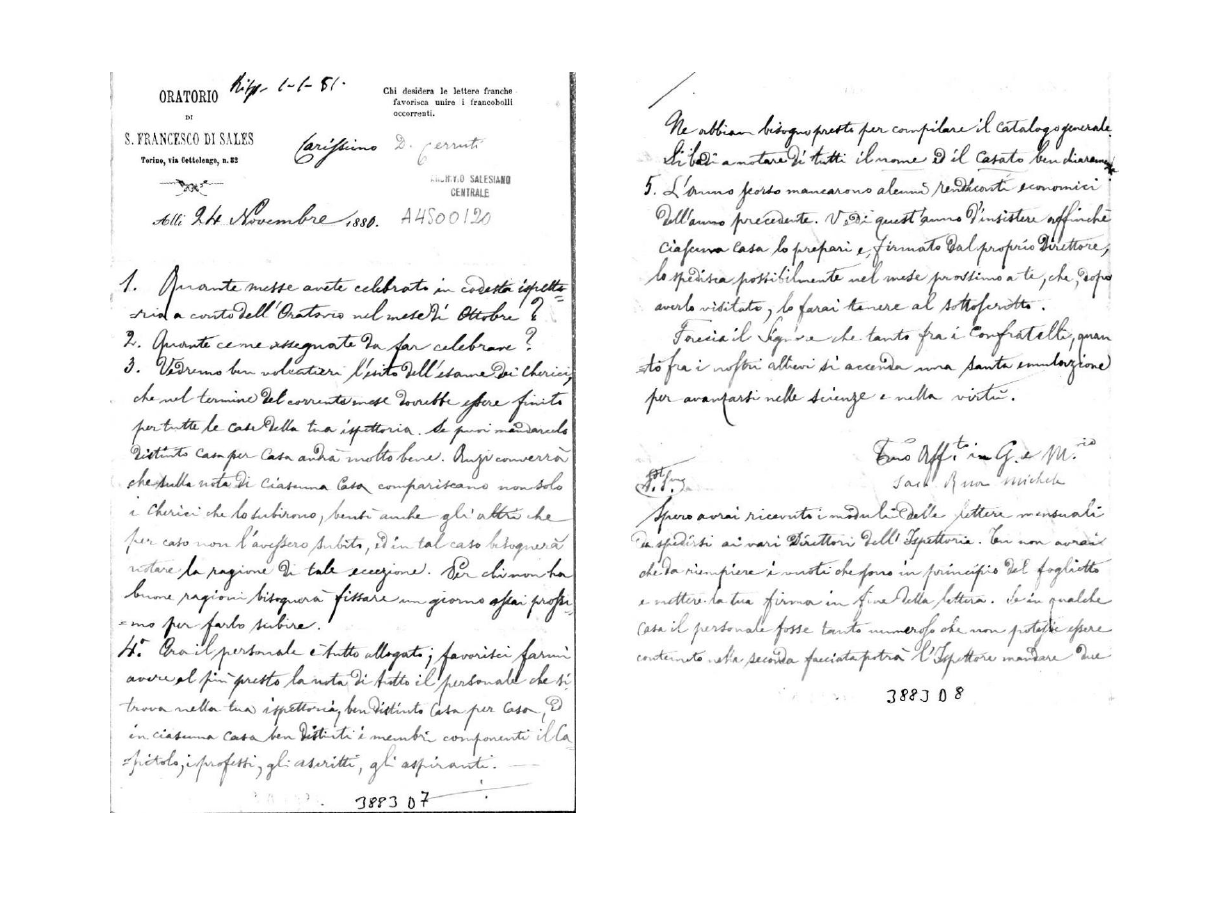 ORATORIO
DI
S. FRANCESCO DI SALES
Torino, via Cottolengo, n. 32
Risp. 1-1-81.
Chi desidera le lettere franche
favorisca unire i francobolli
occorrenti.
Carissimo D. Cerruti
ARCHIVIO SALESIANO
CENTRALE
Alli 24 Novembre 1880.
A4500120
1. Quante messe avete celebrato in codesta ispetto=
=ria a conto dell'Oratorio nel mese di Ottobre?
2. Quante ce ne assegnate da far celebrare?
3. Vedremo ben volentieri l'esito dell'esame dei Cherici,
che nel termine del corrente mese dovrebbe essere finito
per tutte le case della tua ispettoria. Se puoi mandarcelo
distinto casa per casa andrà molto bene. Anzi converrà
che sulla nota di ciascuna Casa compariscano non solo
i Cherici che lo subirono, bensì anche gli altri che
per caso non l'avessero subito, ed in tal caso bisognerà
notare la ragione di tale eccezione. Per chi non ha
buone ragioni bisognerà fissare un giorno assai prossi=
=mo per farlo subire.
4.° Ora il personale è tutto allogato; favorisci farmi
avere al più presto la nota di tutto il personale che si
trova nella tua ispettoria, ben distinto Casa per Casa, ed
in ciascuna Casa ben distinti i membri componenti il Ca
pitolo, i professi, gli ascritti, gli aspiranti.
3883 D7
Ne abbiam bisogno presto per compilare il Catalogo generale.
Si badi a notare di tutti il nome ed il Casato ben chiaramente
5. L'anno scorso mancarono alcuni rendiconti economici
dell'anno precedente. Vedi quest'anno d'insistere affinchè
ciascuna casa lo prepari e, firmato dal proprio Direttore,
lo spedisca possibilmente nel mese prossimo a te, che, dopo
averlo visitato, lo farai tenere al sottoscritto.
Faccia il Signore che tanto fra i Confratelli, quan
to fra i nostri allievi si accenda una santa emulazione
per avanzarsi nelle scienze e nella virtù.
Tuo Aff.to in G. e M.
Sac. Rua Michele
Spero avrai ricevuto i moduli delle lettere mensuali
da spedirsi ai vari Direttori dell'Ispettoria. Tu non avrai
che da riempiere i vuoti che sono in principio del foglietto
e mettere la tua firma in fine della lettera. Se in qualche
casa il personale fosse tanto numeroso che non potesse essere
contenuto nella seconda facciata potrà l'Ispettore mandare due
3883 D8